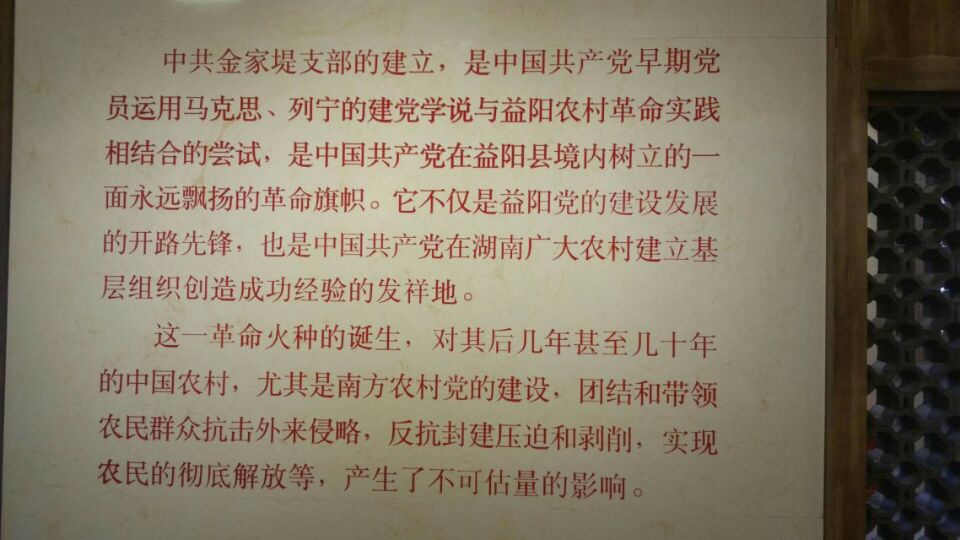 中共金家堤支部的建立，是中国共产党早期党
员运用马克思、列宁的建党学说与益阳农村革命实践
相结合的尝试，是中国共产党在益阳县境内树立的一
面永远飘扬的革命旗帜。它不仅是益阳党的建设发展
的开路先锋，也是中国共产党在湖南广大农村建立基
层组织创造成功经验的发祥地。
这一革命火种的诞生，对其后几年甚至几十年
的中国农村，尤其是南方农村党的建设，团结和带领
农民群众抗击外来侵略，反抗封建压迫和剥削，实现
农民的彻底解放等，产生了不可估量的影响。